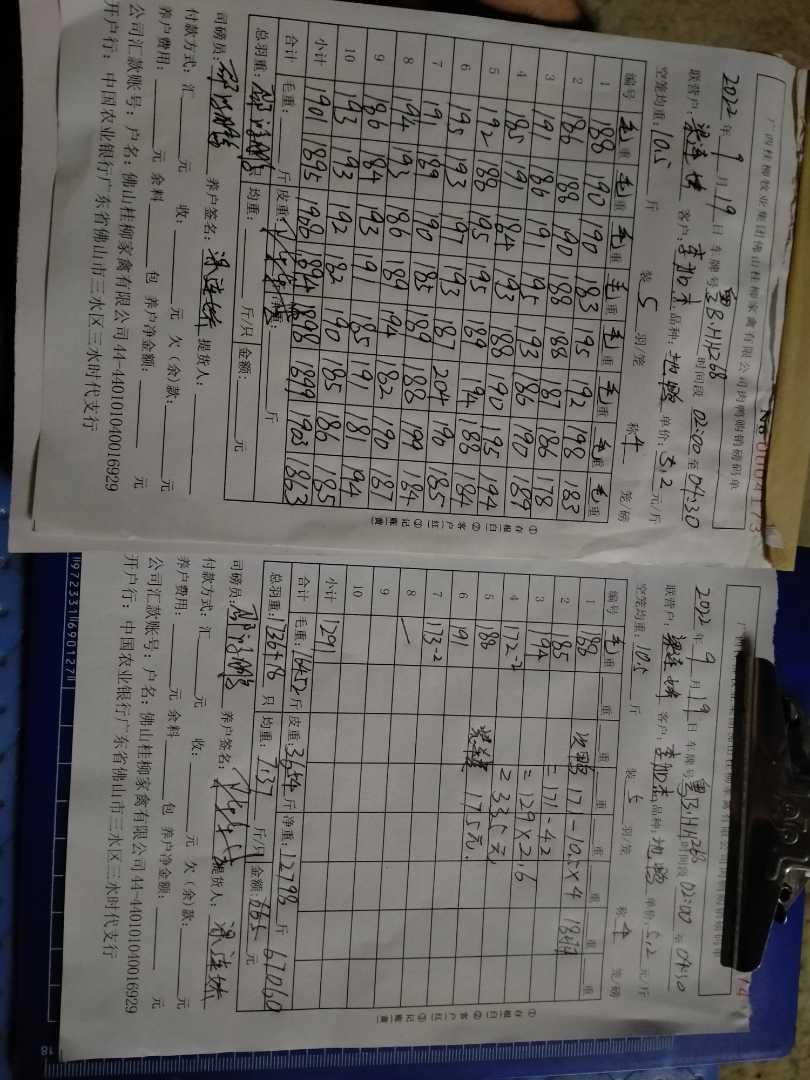 广西桂柳牧业集团佛山桂柳家禽有限公司肉鸭购销磅码单
No 0004173
2022年9月19日 车牌号粤B·HH268 时间段02:00至04:30
联营户: 客户: 品种: 单价:5.2元/斤
空笼均重:10.5斤 装5羽/笼 称4笼/磅
编号 毛重 毛重 毛重 毛重 毛重 毛重 毛重 毛重
1 188 190 190 183 195 192 198 183
2 186 188 190 88 188 187 186 178
3 191 186 191 195 193 186 190 189
4 185 191 184 193 188 190 195 194
5 192 188 195 195 189 194 188 184
6 195 193 197 193 187 204 190 185
7 191 189 190 185 189 188 199 184
8 194 192 186 189 194 182 190 187
9 186 184 193 191 185 191 181 194
10 193 193 192 182 190 185 186 185
小计 1901 1895 1908 1894 1898 1899 1903 1863
合计 毛重:斤 皮重: 净重:斤
总羽重:只 均重:斤/只 金额:元
司磅员: 养户签名: 提货人:
付款方式:汇元 收:元 欠(余)款:元
养户费用:元 余料包 养户净金额:元
公司汇款账号:户名:佛山桂柳家禽有限公司44-440101040016929
开户行:中国农业银行广东省佛山市三水区三水时代支行
①存根(白)②客户(红)③记账(黄)
2022年9月19日 车牌号粤B·HH268 时间段02:00至04:30
联营户: 客户: 品种: 单价:5.2元/斤
空笼均重:10.5斤 装5羽/笼 称4笼/磅
编号 毛重 重 重 重 重 重 重
1 188
2 185 次鸭 171-10.5×4 18羽
3 194 =171-42
4 172-2 =129×2.6
5 188 =335元
6 191 175元.
7 173-2
8 —
9
10
小计 1291
合计 毛重:16452斤 皮重:3654斤 净重:12798斤
总羽重:1736+18只 均重:7.37斤/只 金额: 67060元
司磅员: 养户签名: 提货人:
付款方式:汇元 收:元 欠(余)款:元
养户费用:元 余料包 养户净金额:元
公司汇款账号:户名:佛山桂柳家禽有限公司44-440101040016929
开户行:中国农业银行广东省佛山市三水区三水时代支行
①存根(白)②客户(红)③记账(黄)